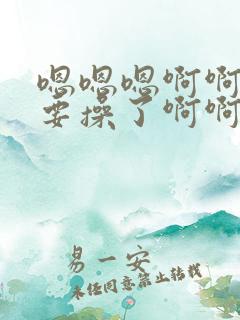 嗯嗯嗯啊啊
要操了啊啊
易一安
未经同意禁止转载